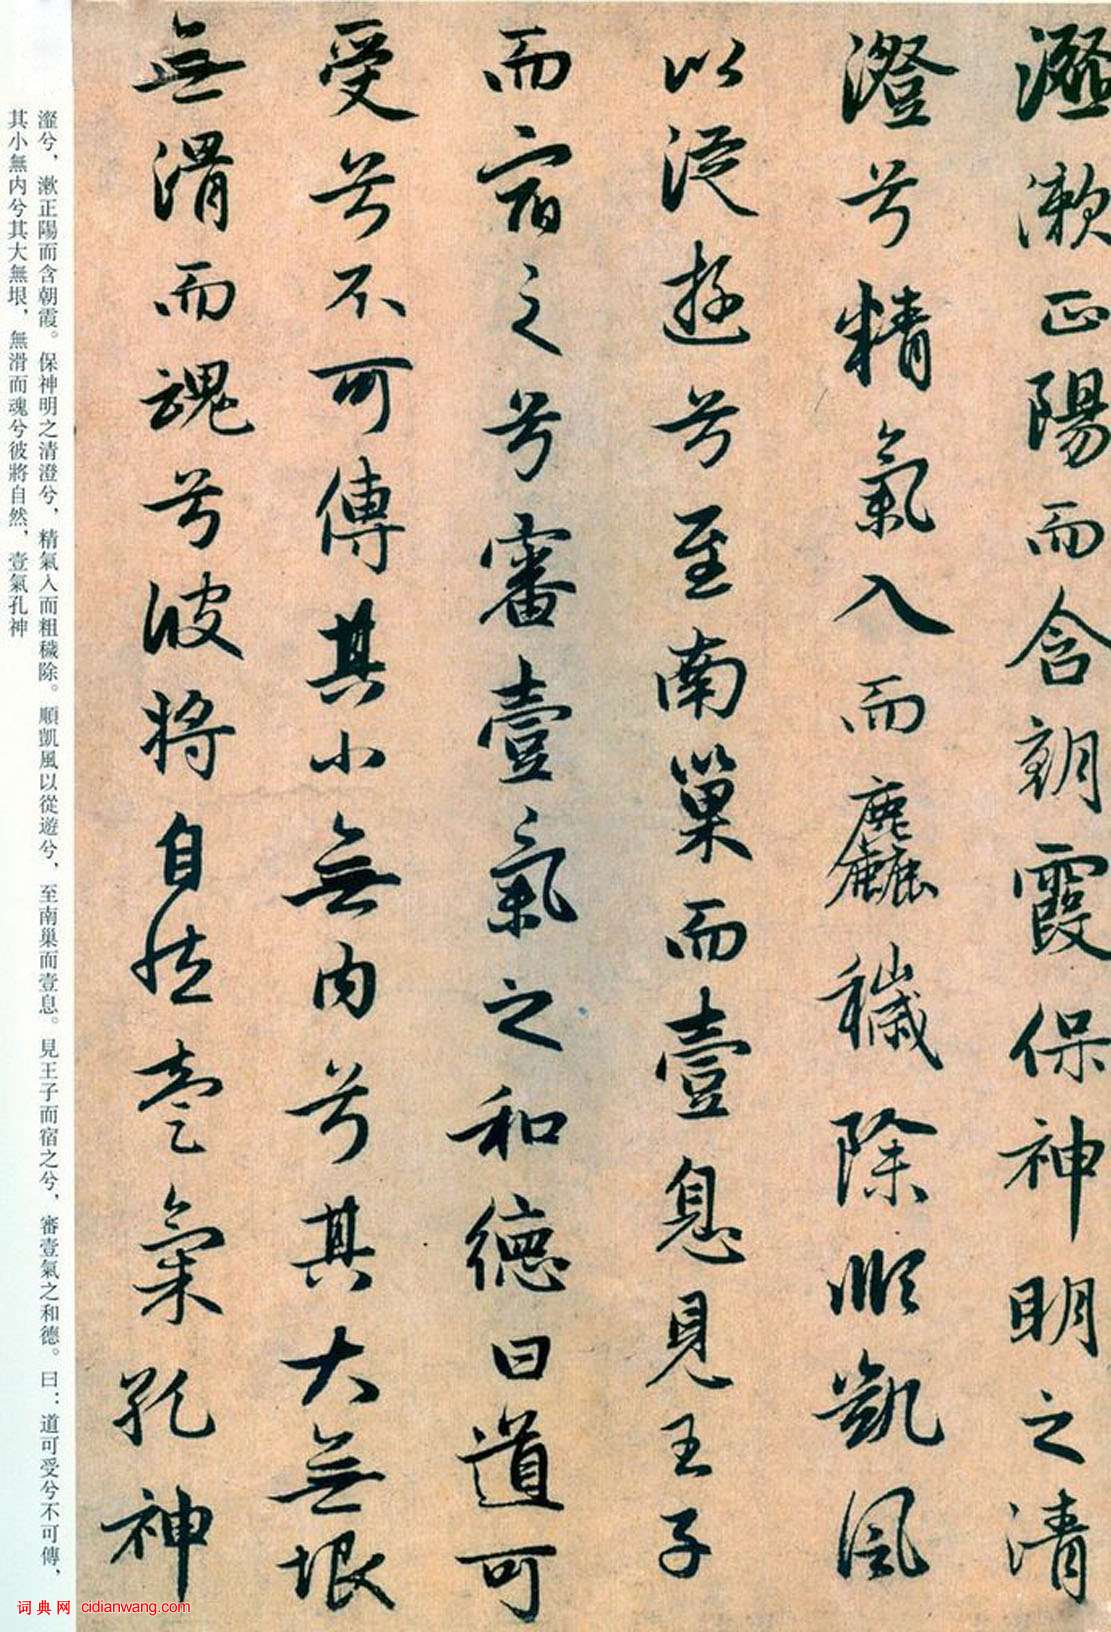 瀣漱正陽而含朝霞保神明之清
澄兮精氣入而麤穢除順凱風
以從遊兮至南巢而壹息見王子
而宿之兮審壹氣之和德曰道可
受兮不可傳其小無内兮其大無垠
無滑而魂兮彼將自然壹氣孔神
瀣兮，漱正陽而含朝霞。保神明之清澄兮，精氣入而粗穢除。順凱風以從遊兮，至南巢而壹息。見王子而宿之兮，審壹氣之和德。曰：道可受兮不可傳，
其小無内兮其大無垠，無滑而魂兮彼將自然，壹氣孔神
词典网 cidianwang.com